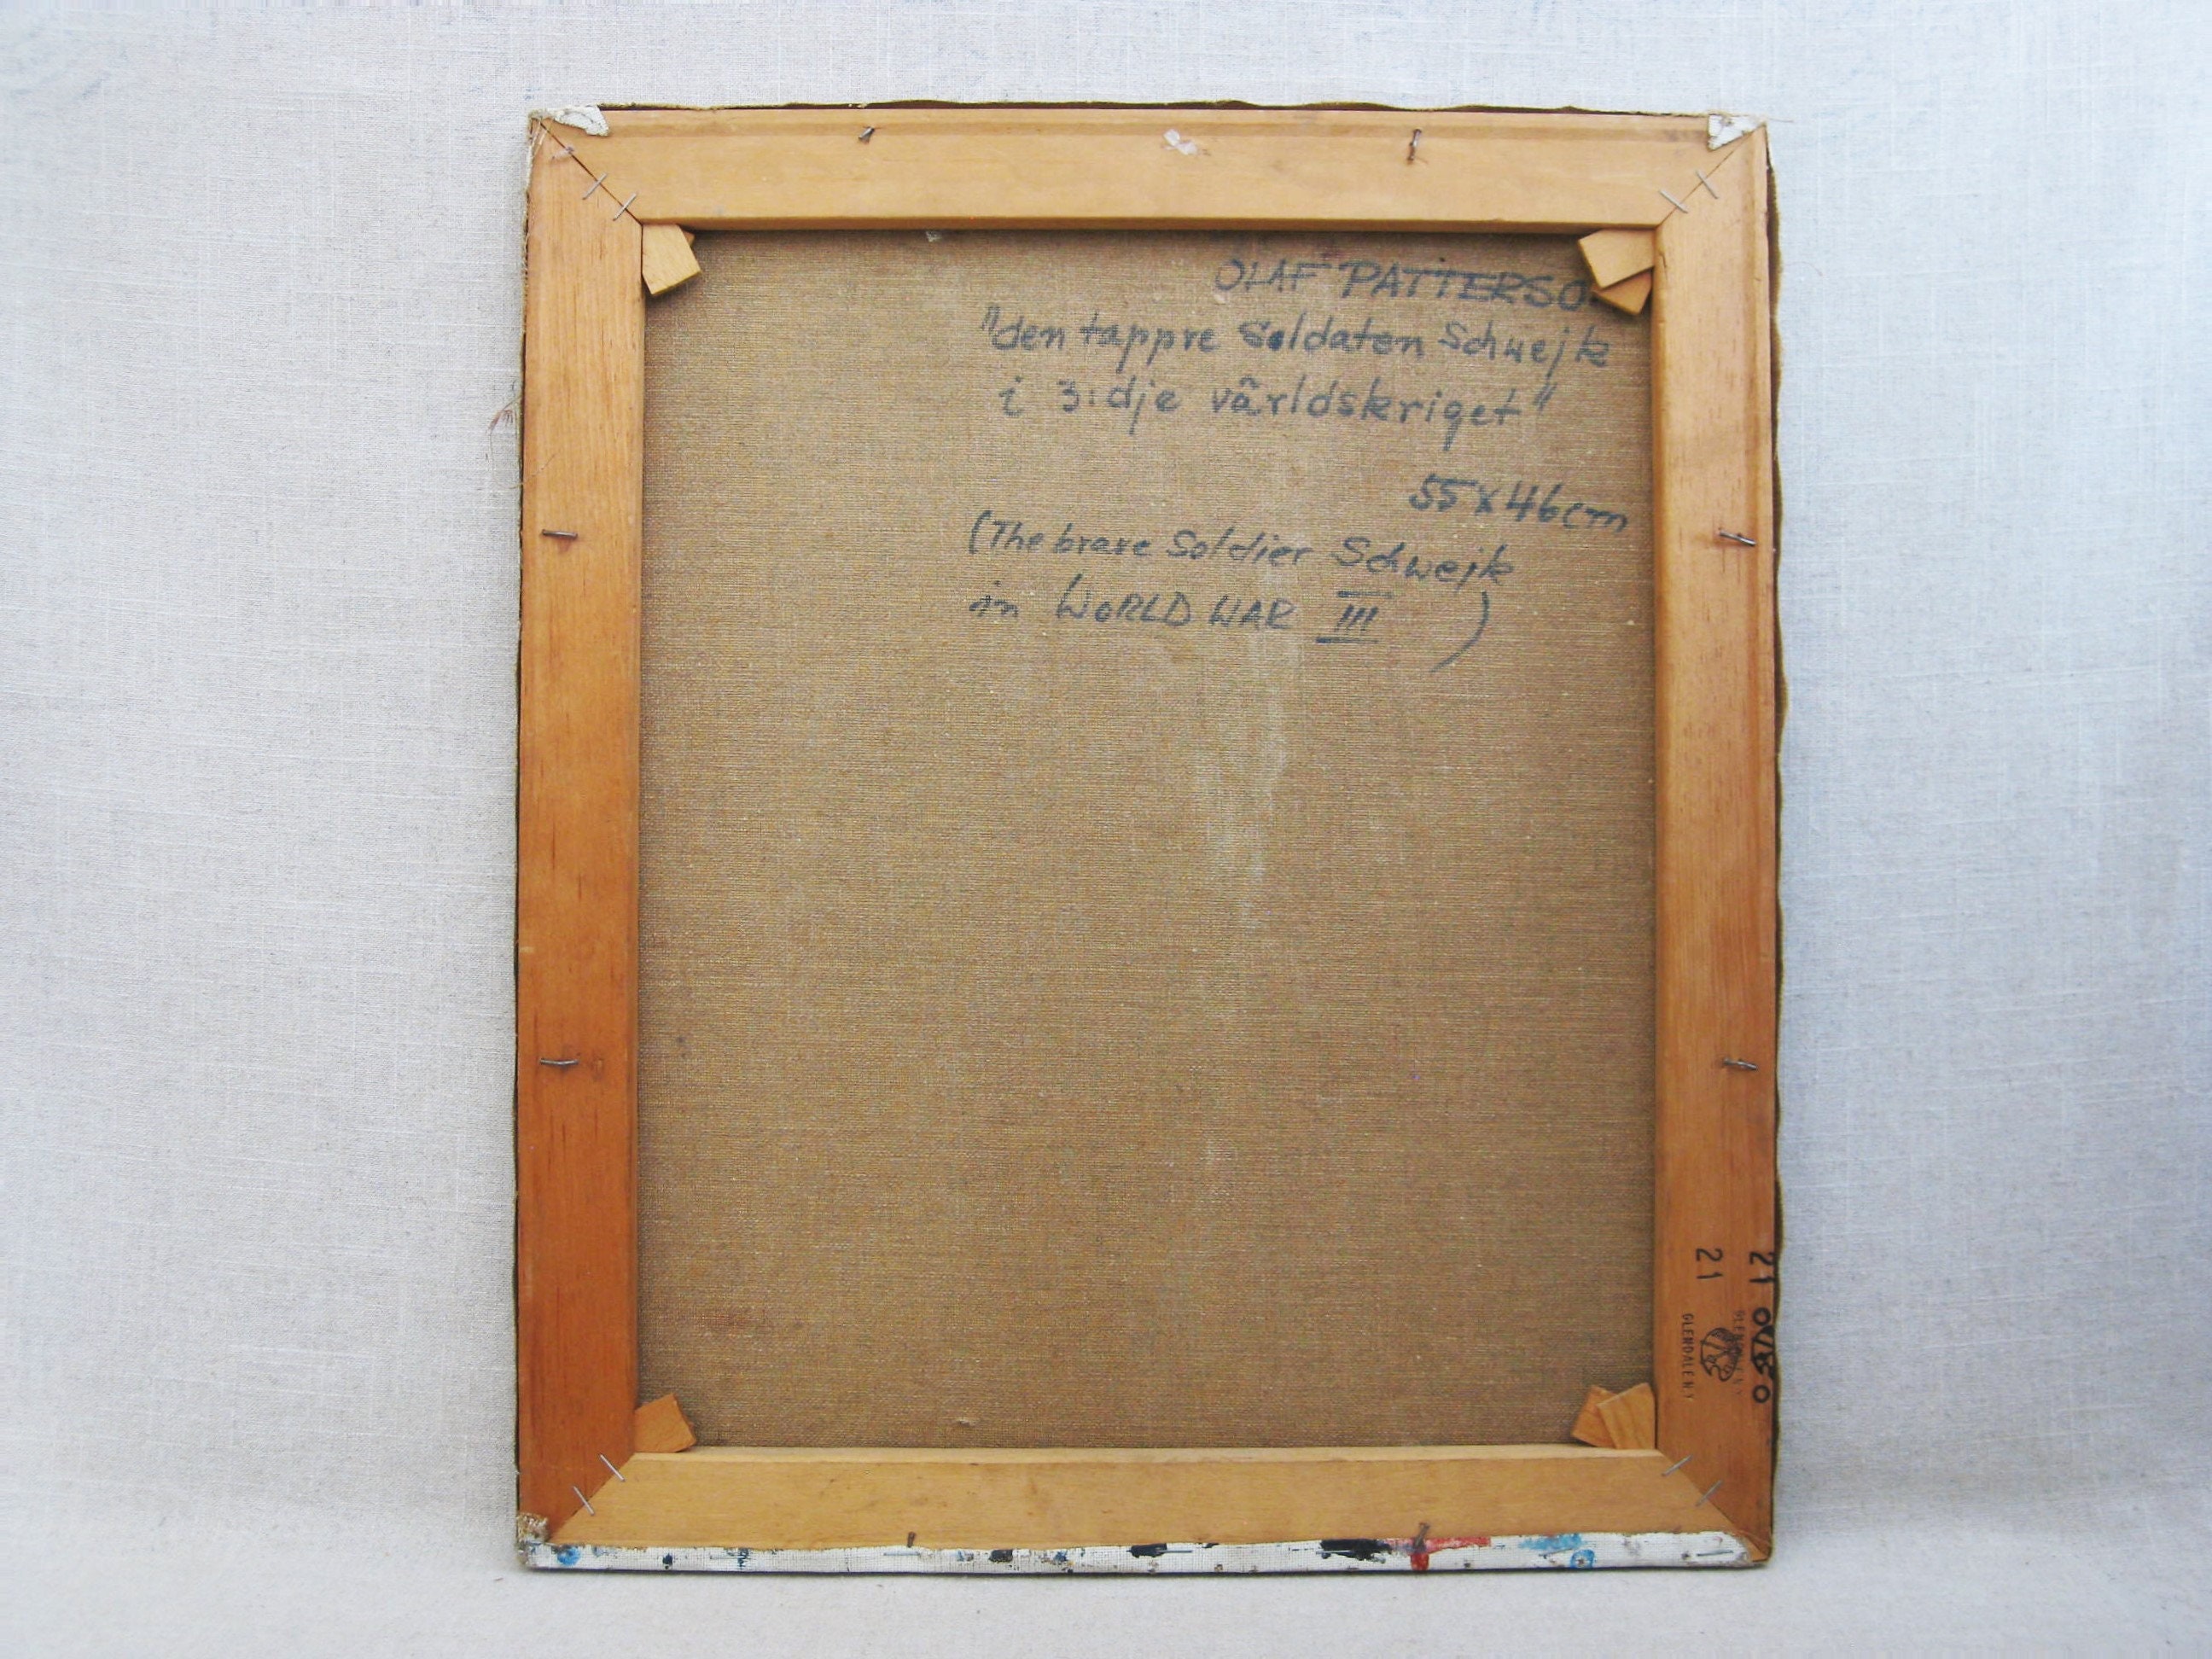 OLAF PATTERSO
"den tappre Soldaten Schwejk
i 3:dje världskriget"
55x46cm
(The brave Soldier Schwejk
in WORLD WAR III )
21
21
GLENDALE NY